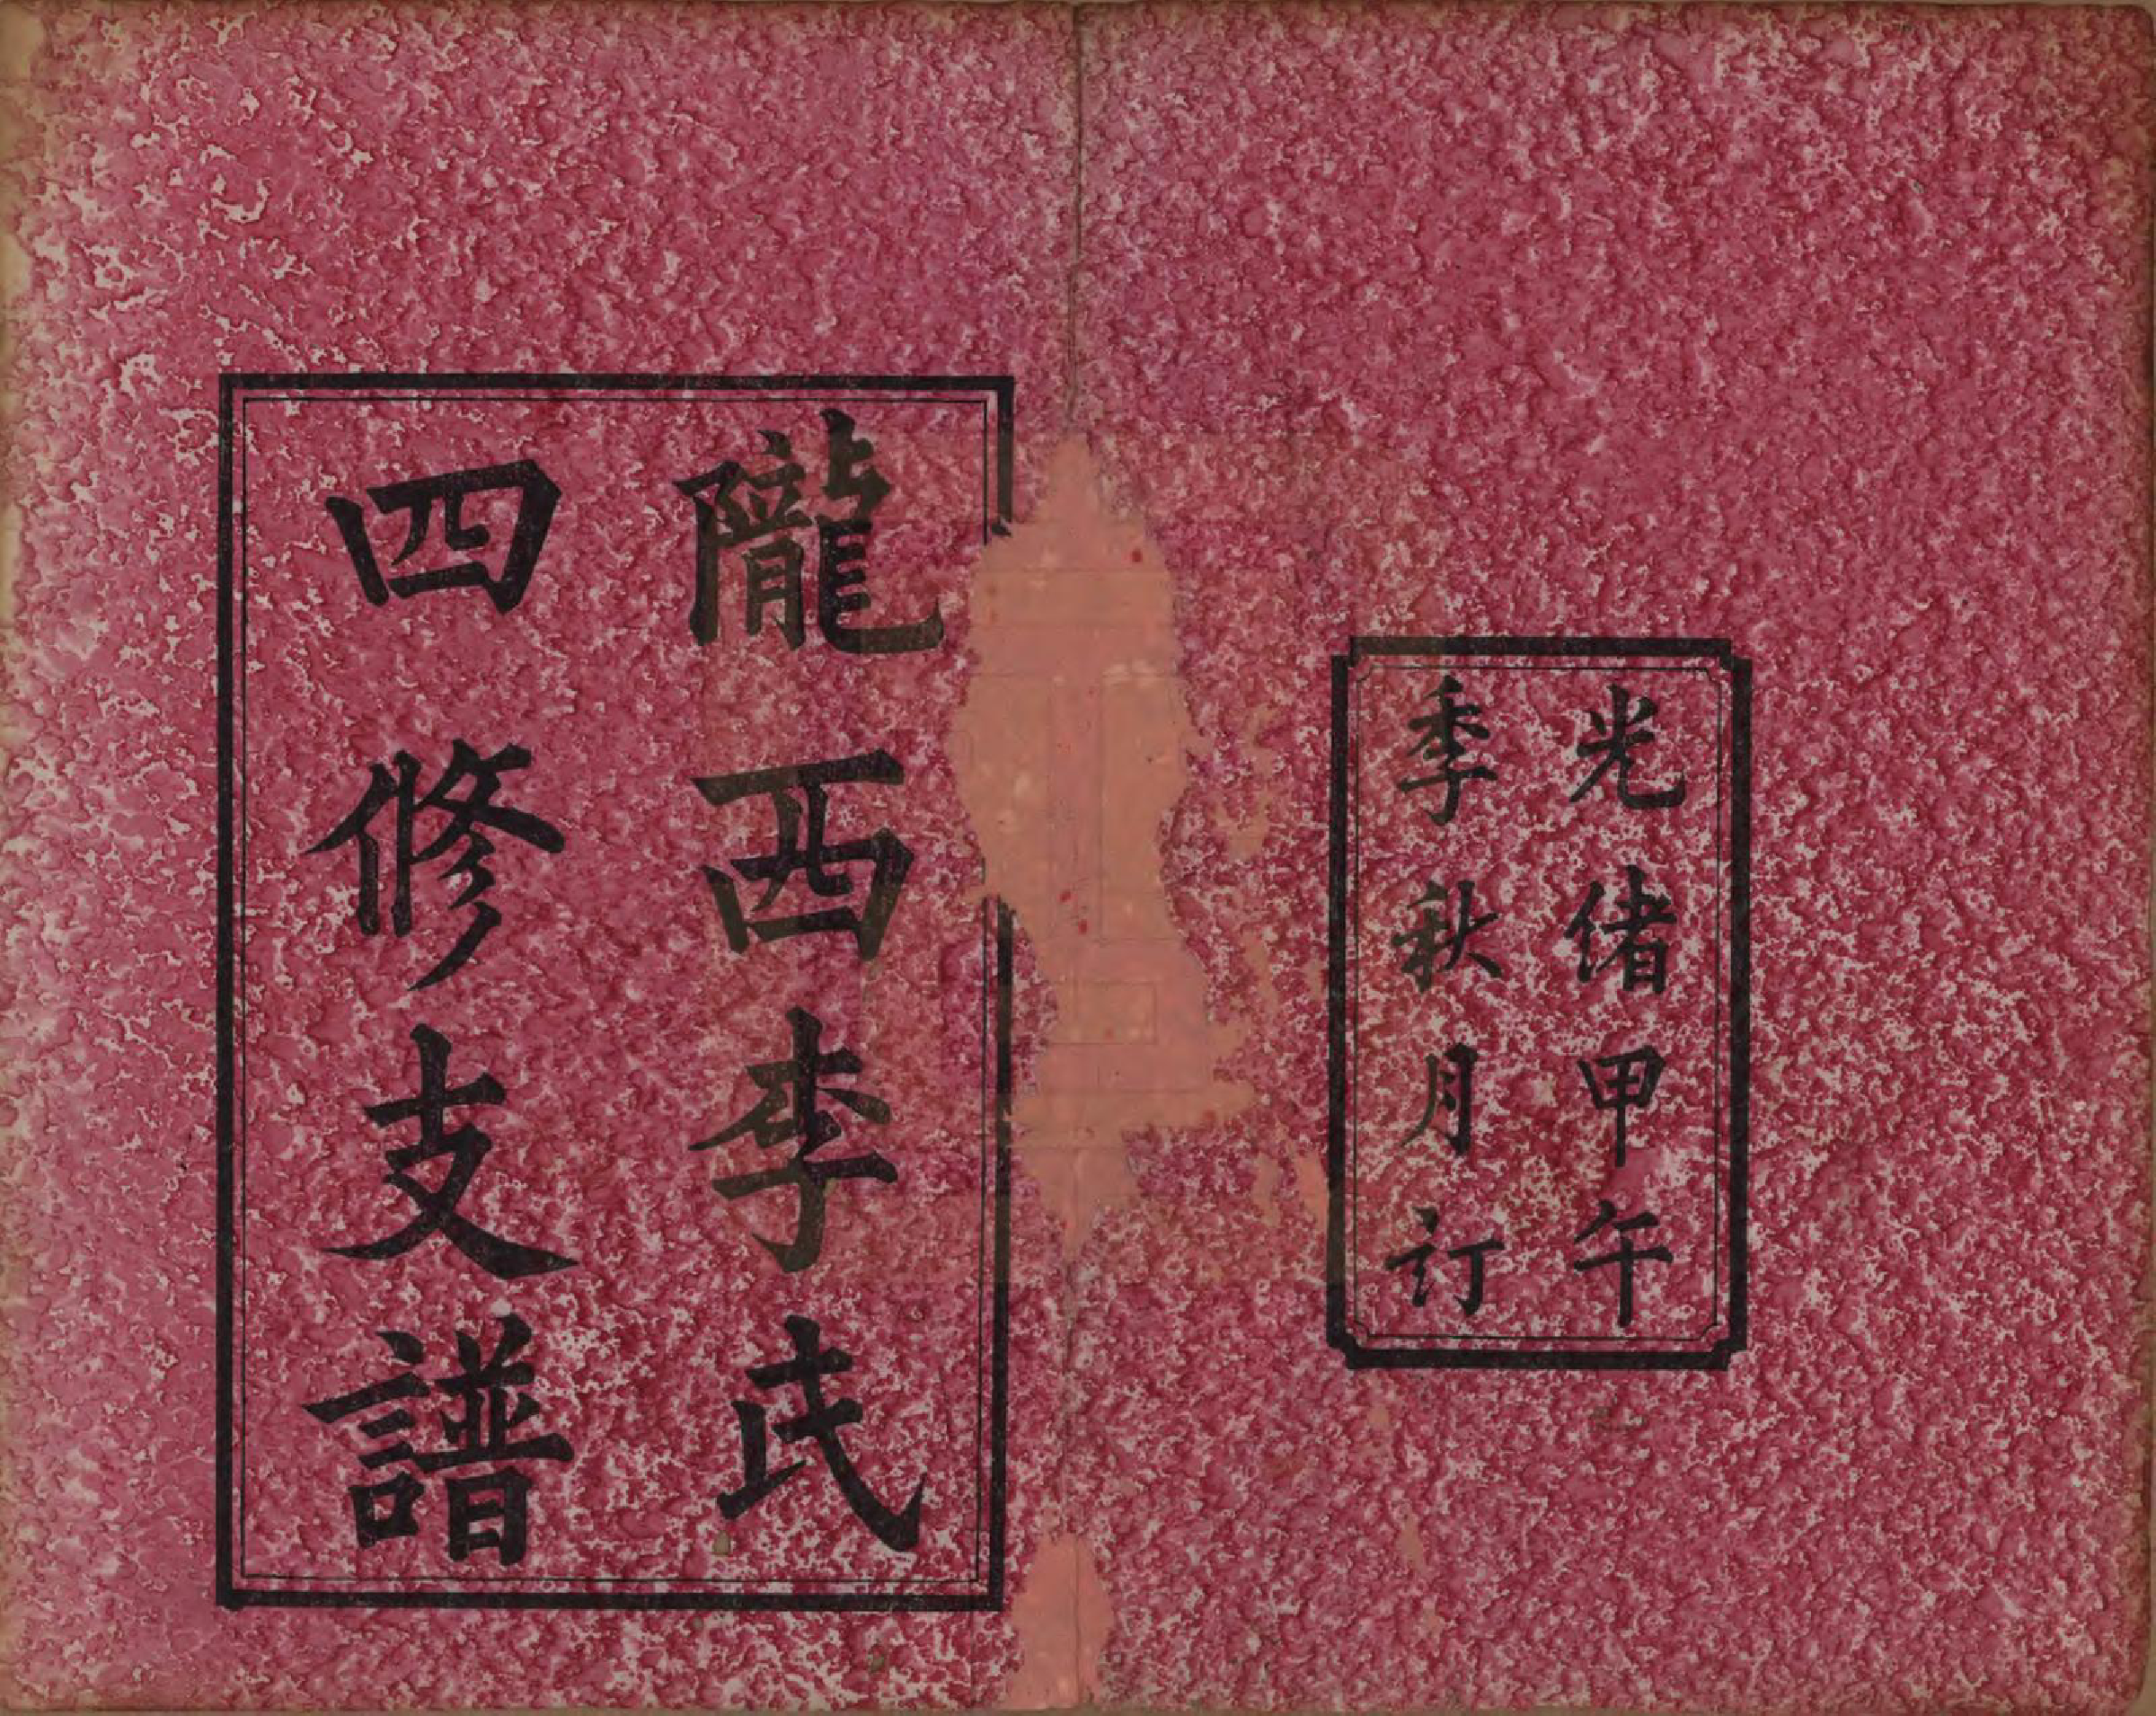 光緒甲午
季秋月訂
隴西李氏
四修支譜